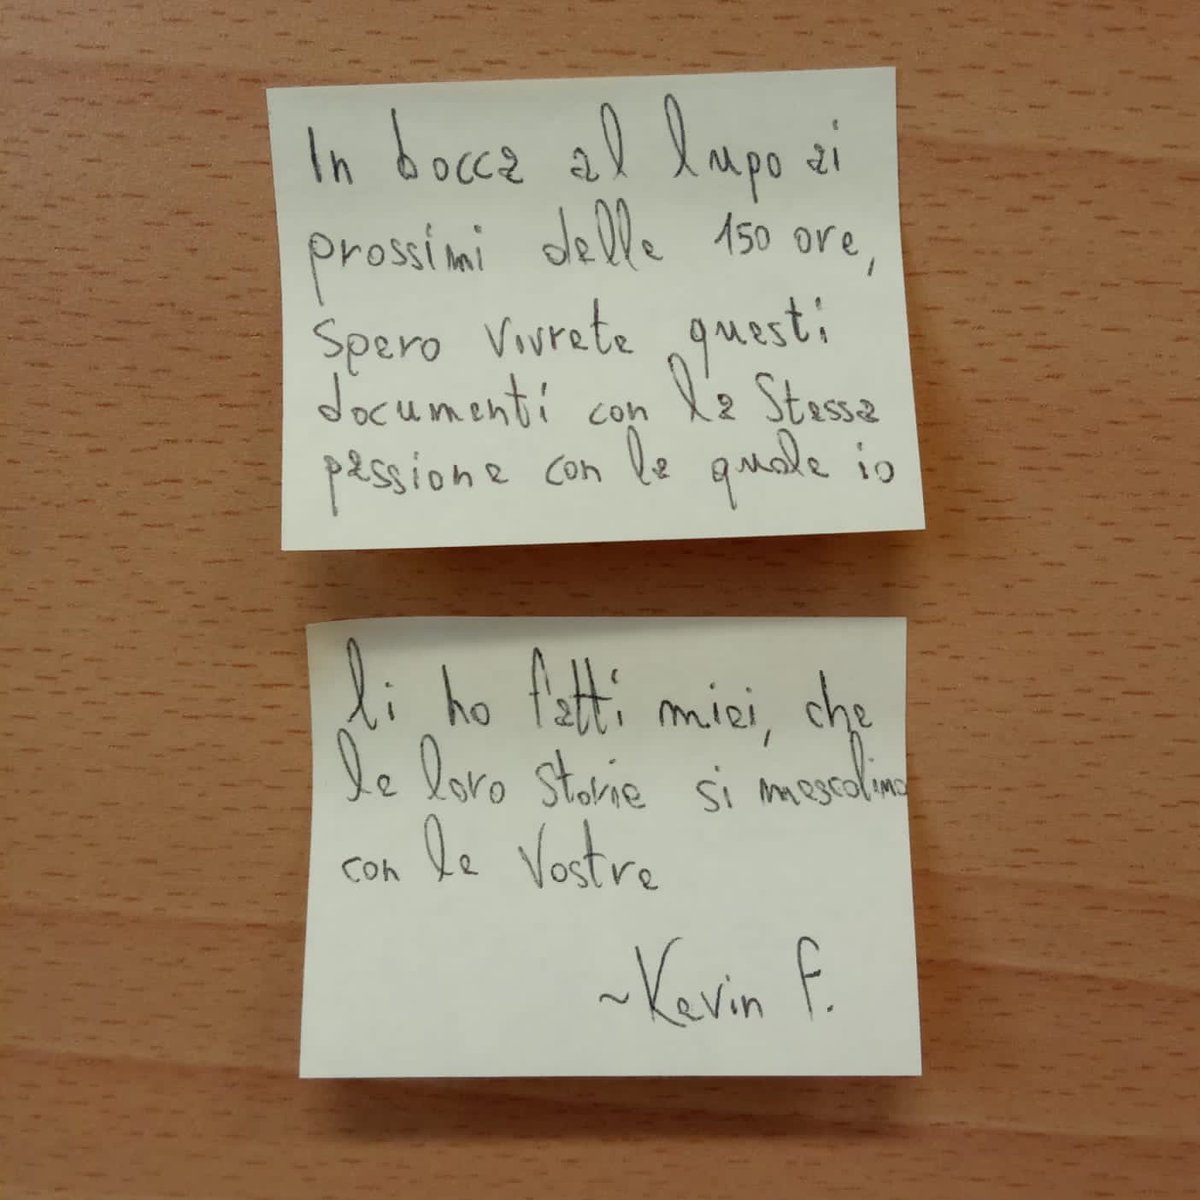 In bocca al lupo ai
prossimi delle 150 ore,
Spero vivrete questi
documenti con la Stessa
passione con la quale io
li ho fatti miei, che
le loro storie si mescolino
con le Vostre
~Kevin F.